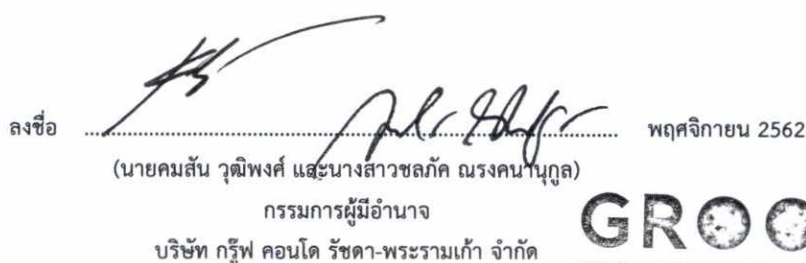 ลงชื่อ ........................................................................ พฤศจิกายน 2562
(นายคมสัน วุฒิพงศ์ และนางสาวชลภัค ณรงคนานุกูล)
กรรมการผู้มีอำนาจ
บริษัท กรู๊ฟ คอนโด รัชดา-พระรามเก้า จำกัด
GROO